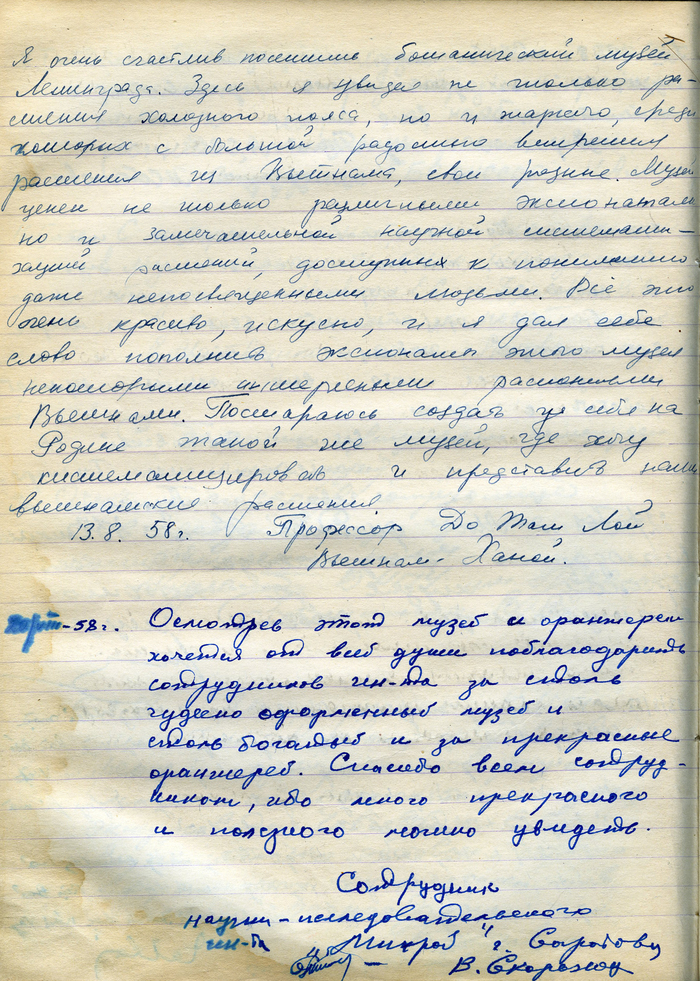 Я очень счастлив посетить ботанический музей
Ленинграда. Здесь я увидел не только ра-
стения холодного пояса, но и жаркого, среди
которых с большой радостью встретил
растения из Вьетнама, свои родные. Музей
ценен не только различными экспонатами
но и замечательной научной системати-
зацией растений, доступных к пониманию
даже непосвященными людьми. Всё это
очень красиво, искусно, и я дал себе
слово пополнить экспонаты этого музея
некоторыми интересными растениями
Вьетнама. Постараюсь создать у себя на
Родине такой же музей, где хочу
систематизировать и представить наши
вьетнамские растения.
13.8. 58г. Профессор До Тат Лой
Вьетнам - Ханой.
-58г. Осмотрев этот музей и оранжереи
хочется от всей души поблагодарить
сотрудников ин-та за столь
чудесно оформленный музей и
столь богатый и за прекрасные
оранжереи. Спасибо всем сотруд-
никам, ибо много прекрасного
и полезного можно увидеть.
Сотрудник
научн-исследовательского
ин-та "Микроб" г. Саратова
В.